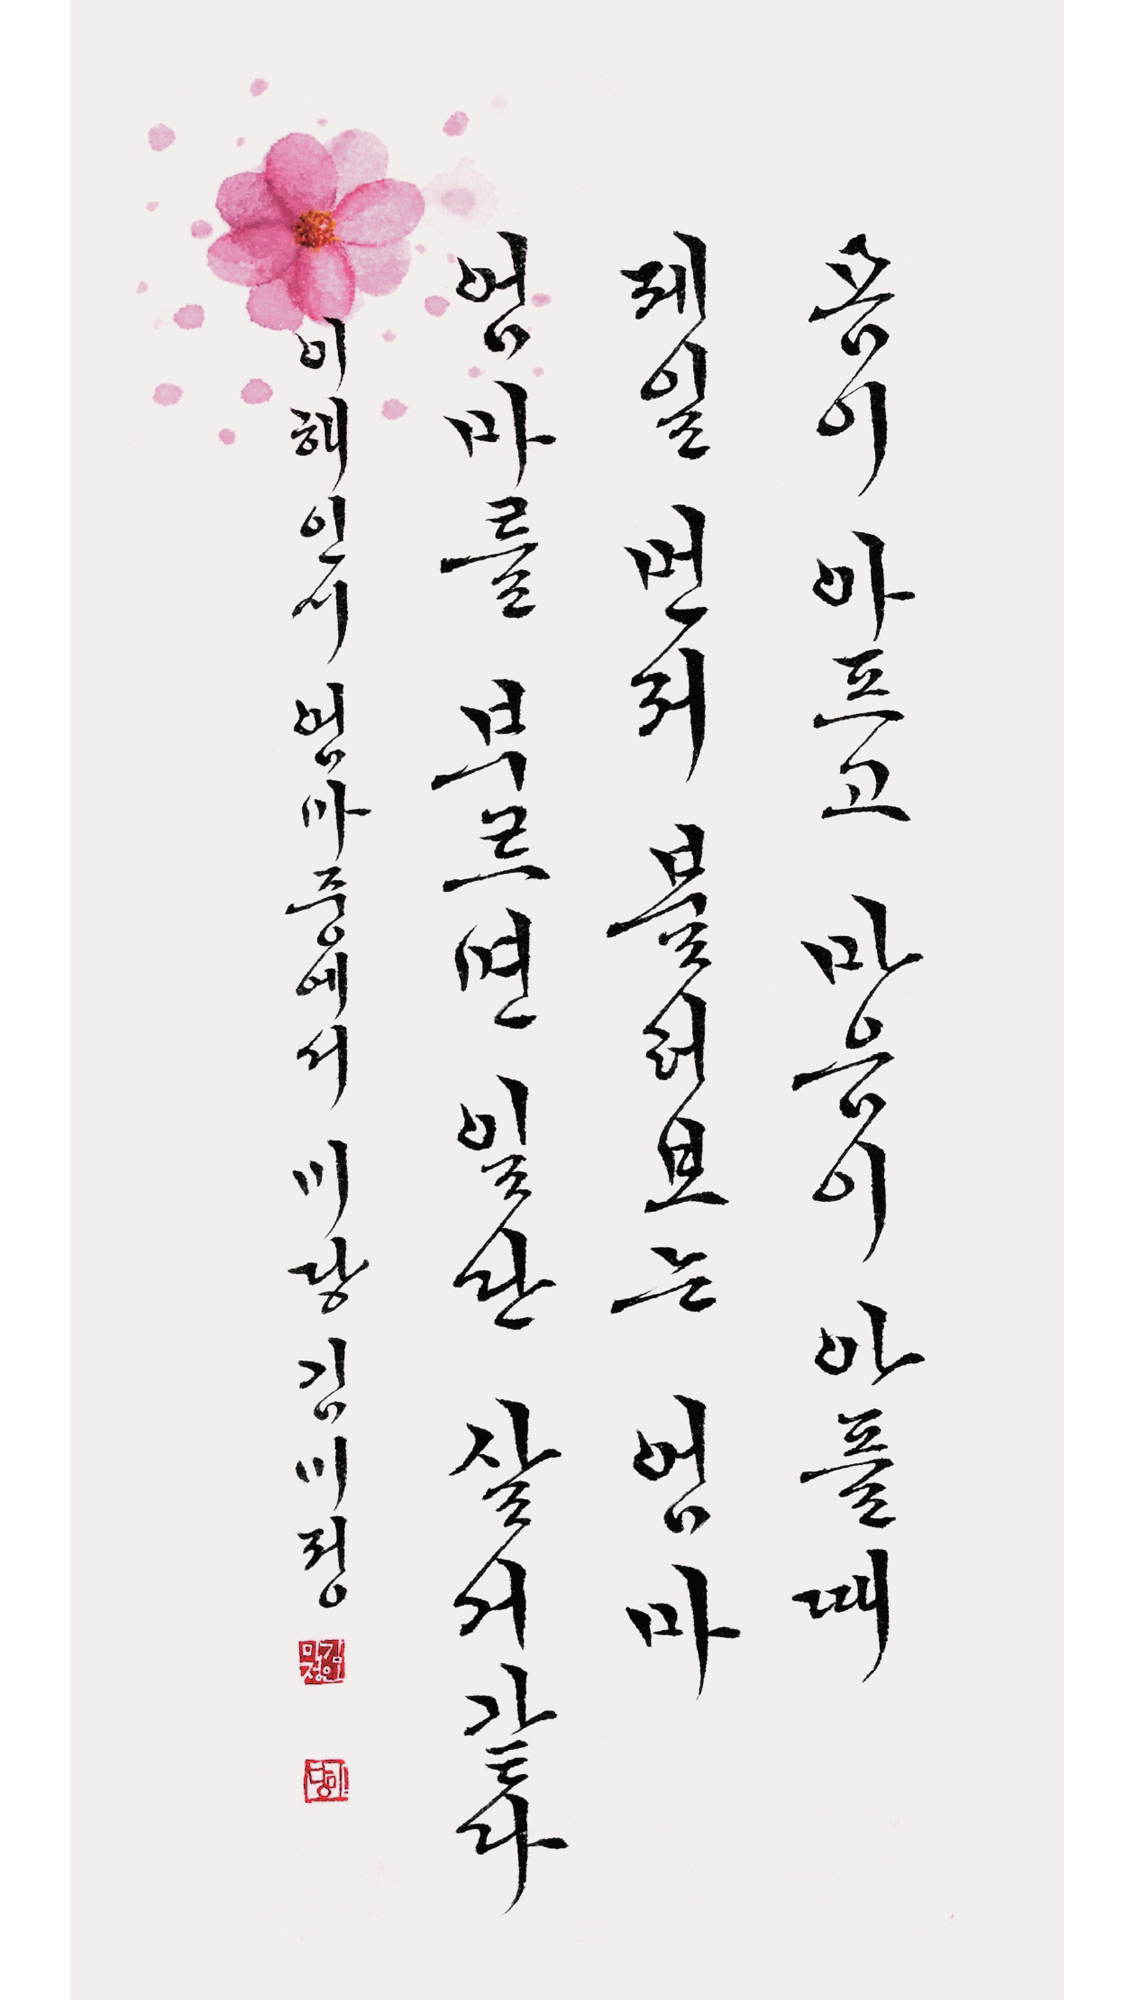 몸이 아프고 마음이 아플 때
제일 먼저 불러보는 엄마
엄마를 부르면 일단 살 것 같다
이해인시 엄마 중에서 미당 김미정
김인미정